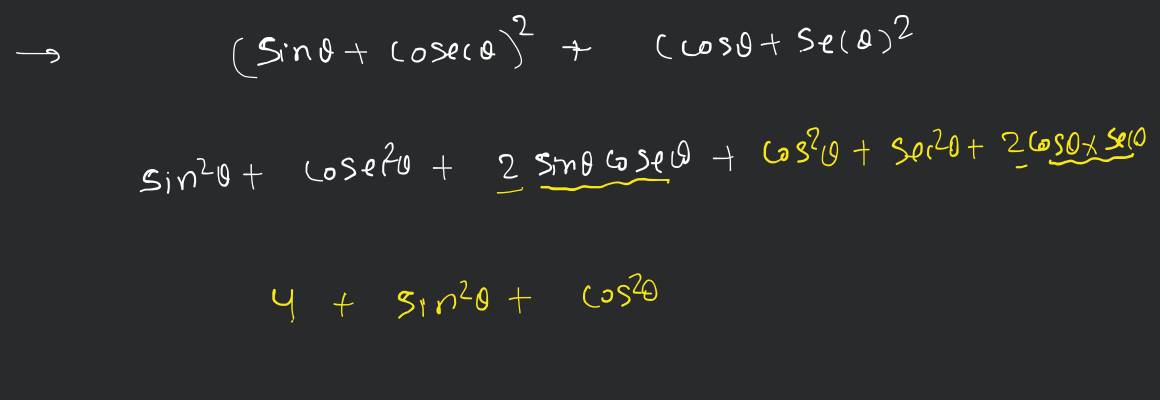 → (sinθ + cosecθ)² + (cosθ + secθ)²
sin²θ + cosec²θ + 2 sinθ cosecθ + cos²θ + sec²θ + 2cosθ x secθ
4 + sin²θ + cos²θ